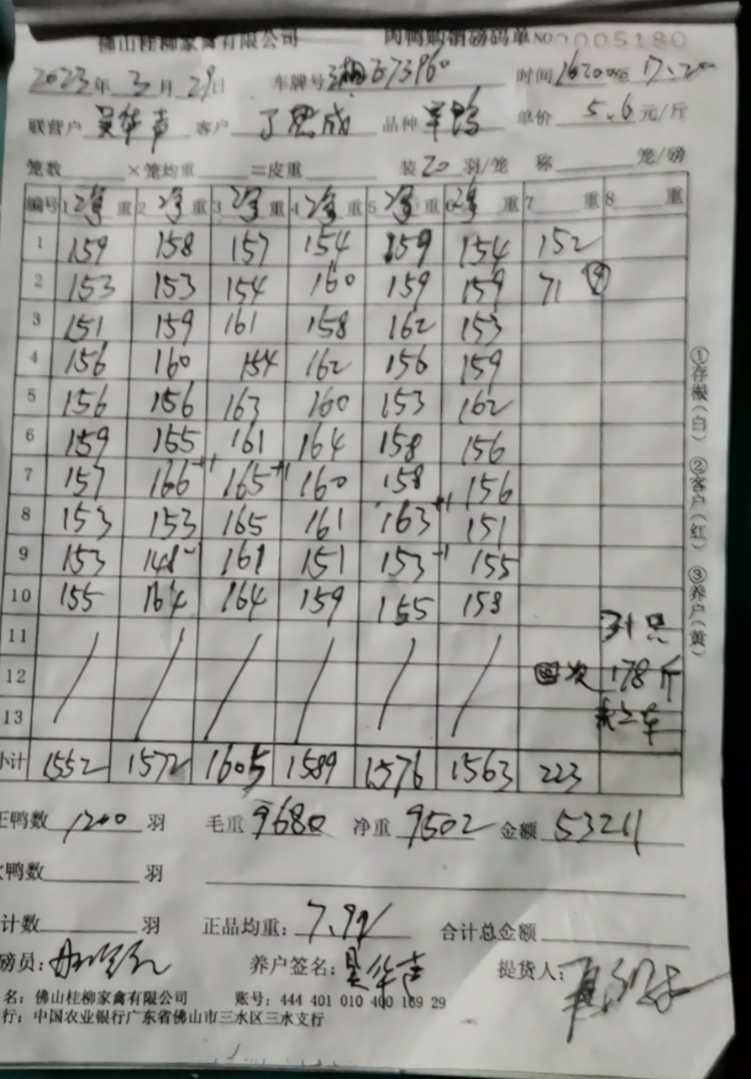 佛山桂柳家禽有限公司 肉鸭购销磅码单 NO 0005180
2023年3月29日 车牌号 时间
联营户 吴华声 客户 品种 单价 5.6 元/斤
笼数 ×笼均重 =皮重 装 20 羽/笼 称 笼/磅
编号 1 重 2 重 3 重 4 重 5 重 6 重 7 重 8 重
1 159 158 157 154 159 154 152
2 153 153 154 160 159 159 71
3 151 159 161 158 162 153
4 156 160 154 162 156 159
5 156 156 163 160 153 162
6 159 155 161 164 158 156
7 157 166 +1 165 +1 160 158 156
8 153 153 165 161 163 +1 151
9 153 148 -1 161 151 153 -1 155
10 155 164 164 159 155 158
11
12 178斤
13
小计 1552 1572 1605 1589 1576 1563 223
正鸭数 1200 羽 毛重 9680 净重 9502 金额 53211
鸭数 羽
计数 羽 正品均重: 7.92 合计总金额
磅员: 养户签名: 吴华声 提货人:
名: 佛山桂柳家禽有限公司 账号: 444 401 010 400 169 29
行: 中国农业银行广东省佛山市三水区三水支行
①存根(白) ②客户(红) ③养户(黄)